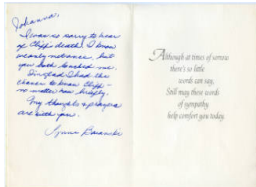 Johanna,
I was so sorry to hear
of Cliff death. I know
nearly not once, but
you both
I'm glad I had the
chance to know Cliff -
no matter how briefly.
My thoughts & prayers
are with you.
Lynne
Although at times of sorrow
there's so little
words can say,
Still may these words
of sympathy
help comfort you today.